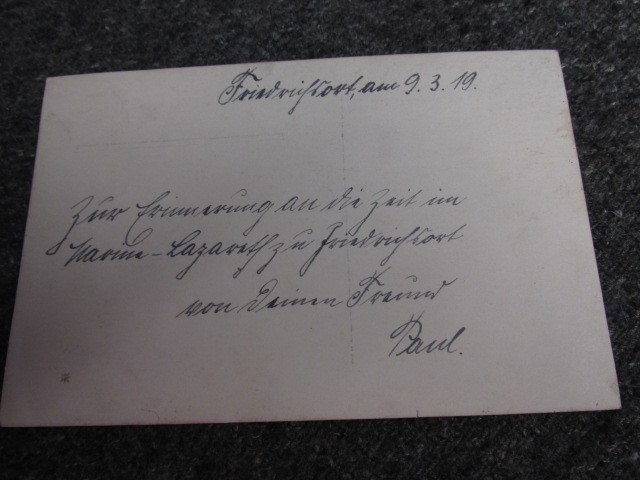 Friedrichsort, am 9.3.19.
Zur Erinnerung an die Zeit im
Marine-Lazareth zu Friedrichsort
von Deinen Freund
Paul.